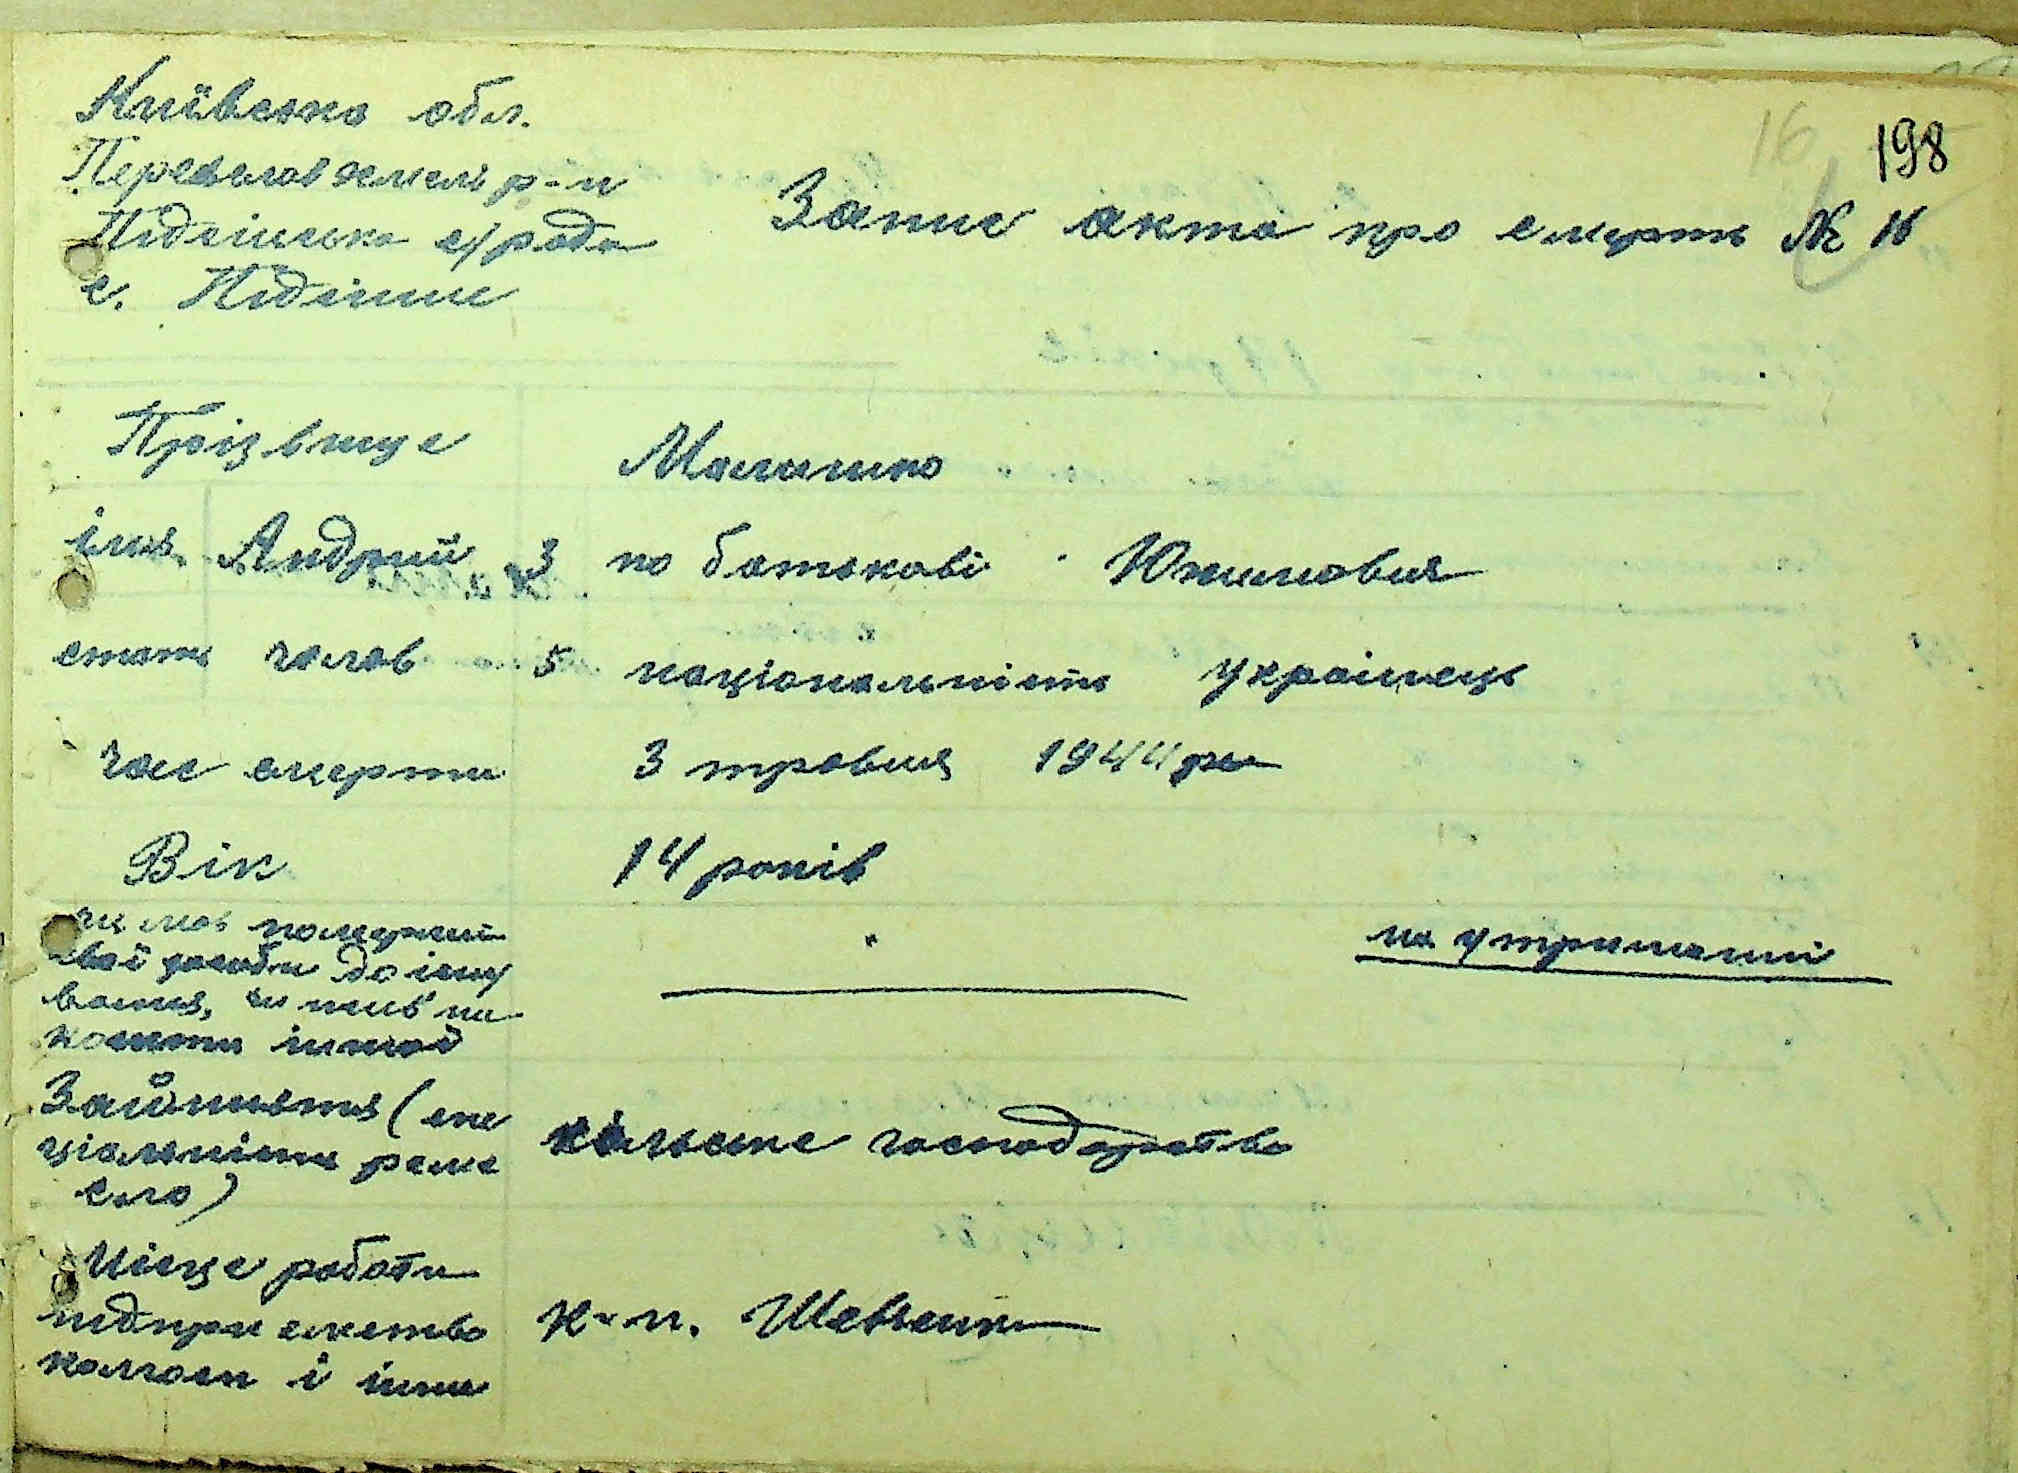 16 198
Київська обл.
Переяслав хмель р-н
Підсінська с/рада
с. Підсінне
Запис акта про смерть № 16
Прізвище Малишко
імя Андрій 3 по батькові
стать чолов 5 національність українець
час смерти 3 травня 1944 р
Вік 14 років
чи мав померший
свої засоби до існу
вання, чи жив на
кошти іншої
на утриманні
Зайняття (спе
ціальність реме
сло)
сільське господарство
Місце роботи
підприемство
колгосп і інше
к-п. Шевченка